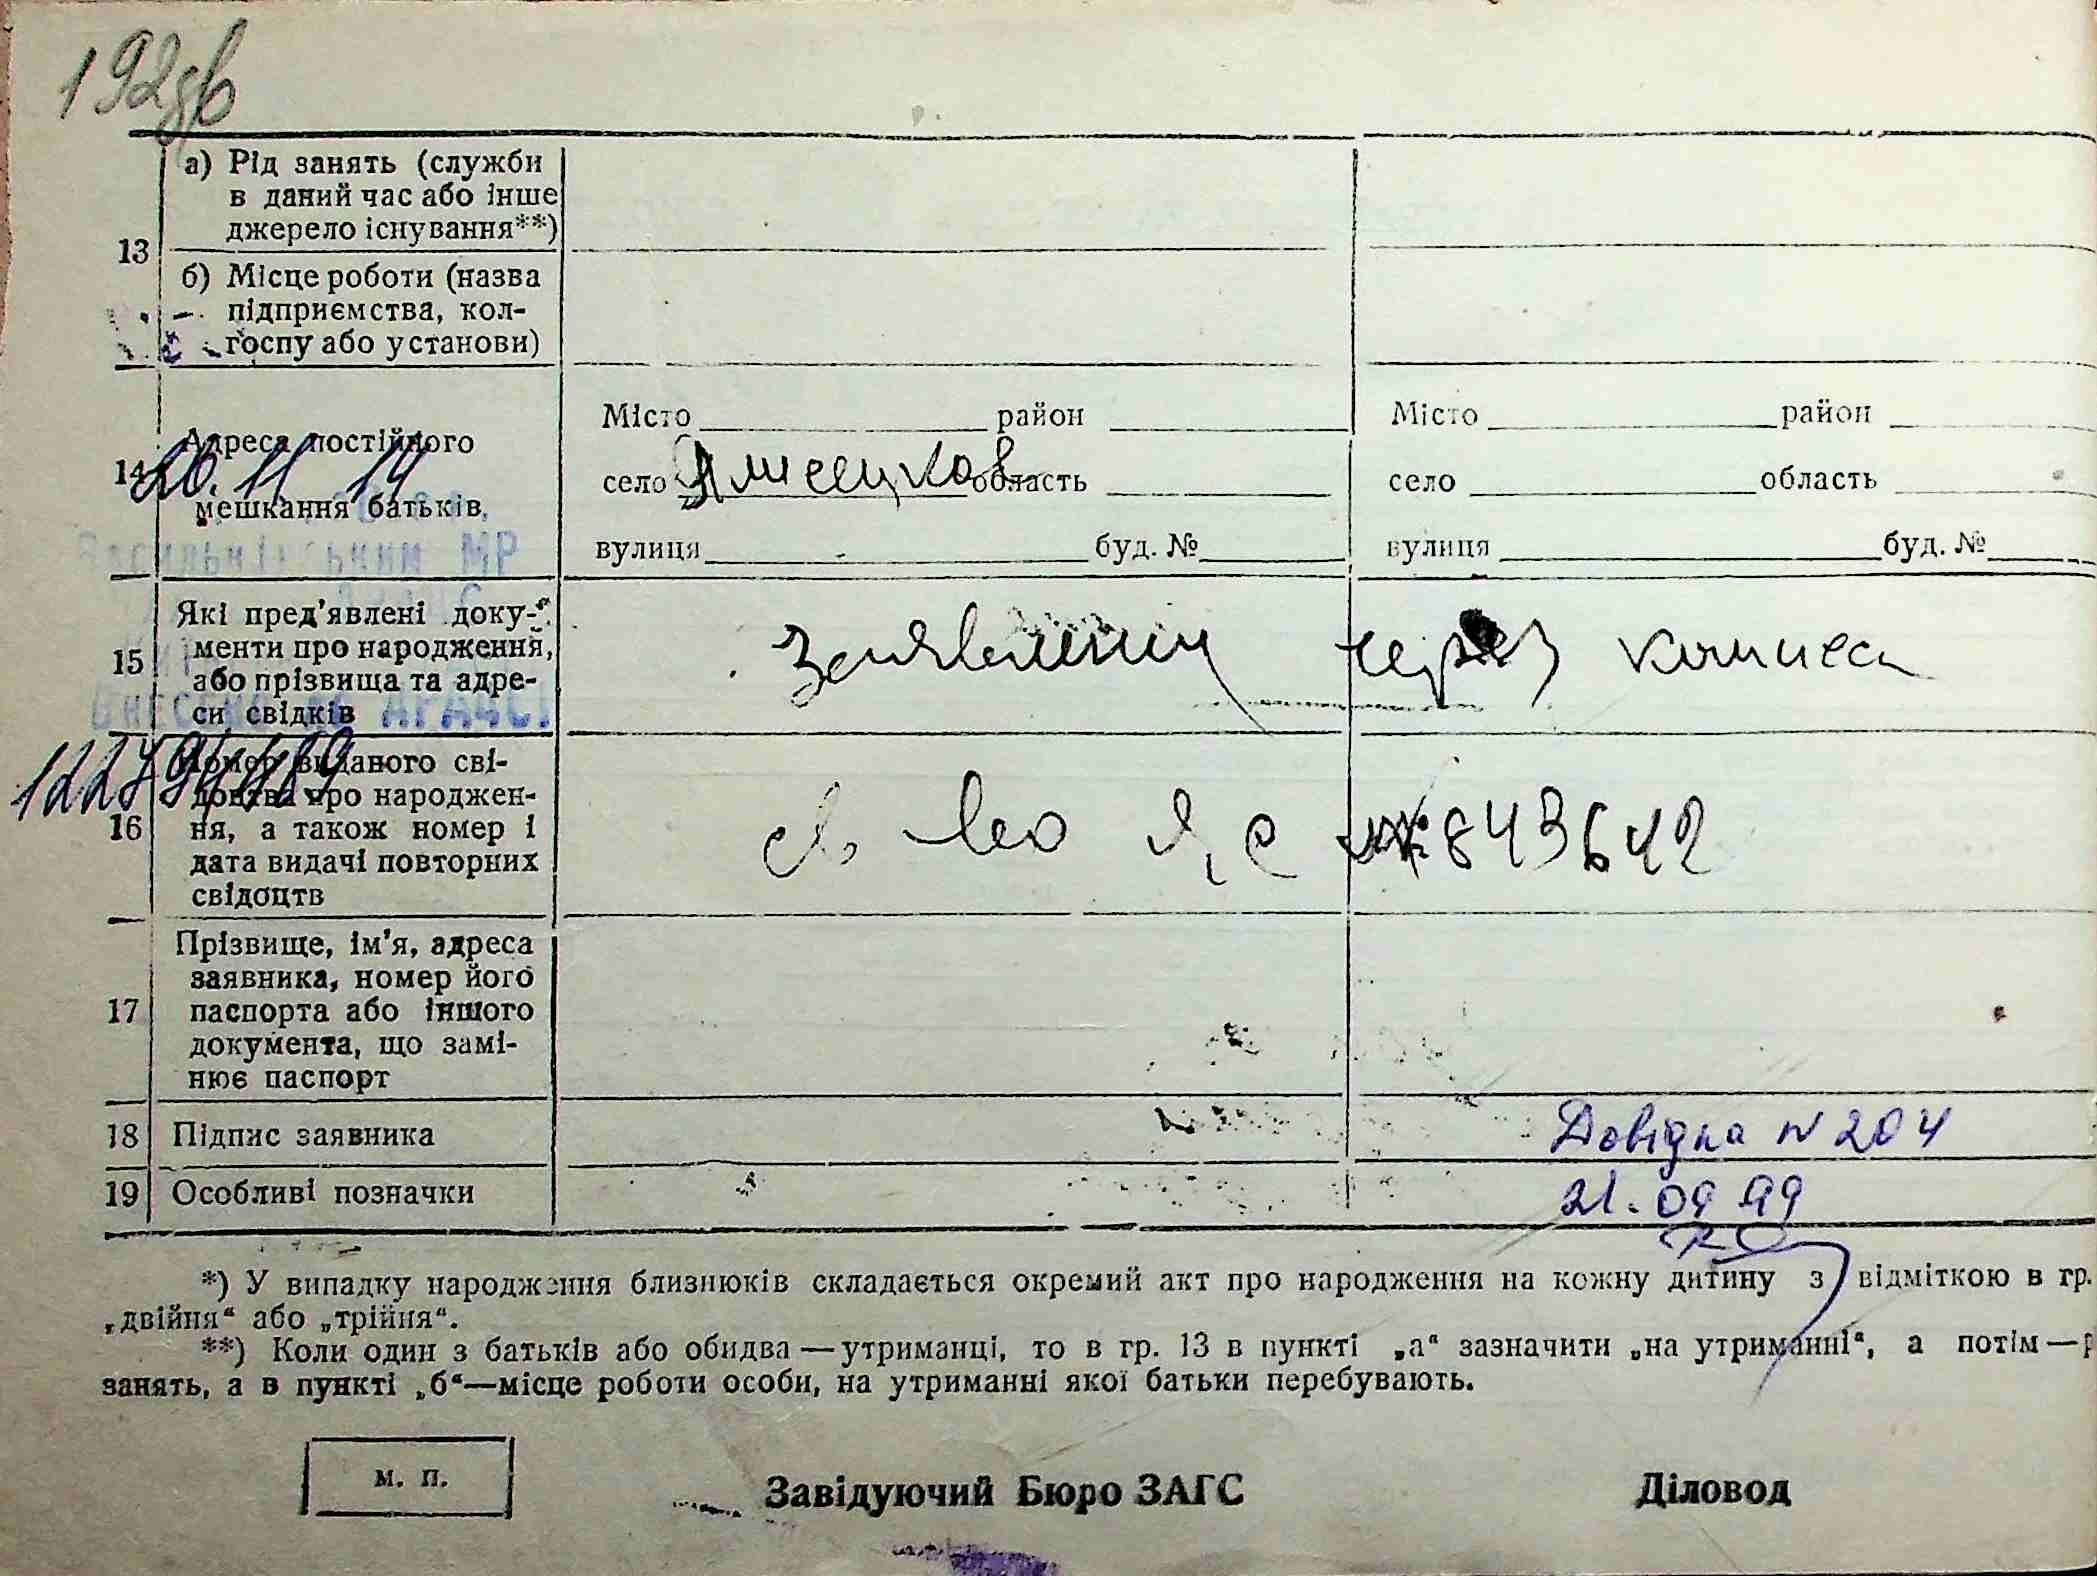 192зв
13
а) Рід занять (служби
в даний час або інше
джерело існування**)
б) Місце роботи (назва
підприємства, кол-
госпу або установи)
14
Адреса постійного
мешкання батьків
20. 11 14
Місто район
село область
вулиця буд. №
Місто район
село область
вулиця буд. №
МР
15
Які пред'явлені доку-
менти про народження,
або прізвища та адре-
си свідків
ДРАЦС
через
16
Номер виданого сві-
доцтва про народжен-
ня, а також номер і
дата видачі повторних
свідоцтв
св во Яс № 843642
17
Прізвище, ім'я, адреса
заявника, номер його
паспорта або іншого
документа, що замі-
нює паспорт
18 Підпис заявника
Довідка N 204
19 Особливі позначки
21. 09 99
*) У випадку народження близнюків складається окремий акт про народження на кожну дитину з відміткою в гр.
„двійня“ або „трійня“.
**) Коли один з батьків або обидва — утриманці, то в гр. 13 в пункті „а“ зазначити „на утриманні“, а потім — р
занять, а в пункті „б“—місце роботи особи, на утриманні якої батьки перебувають.
м. п.
Завідуючий Бюро ЗАГС Діловод